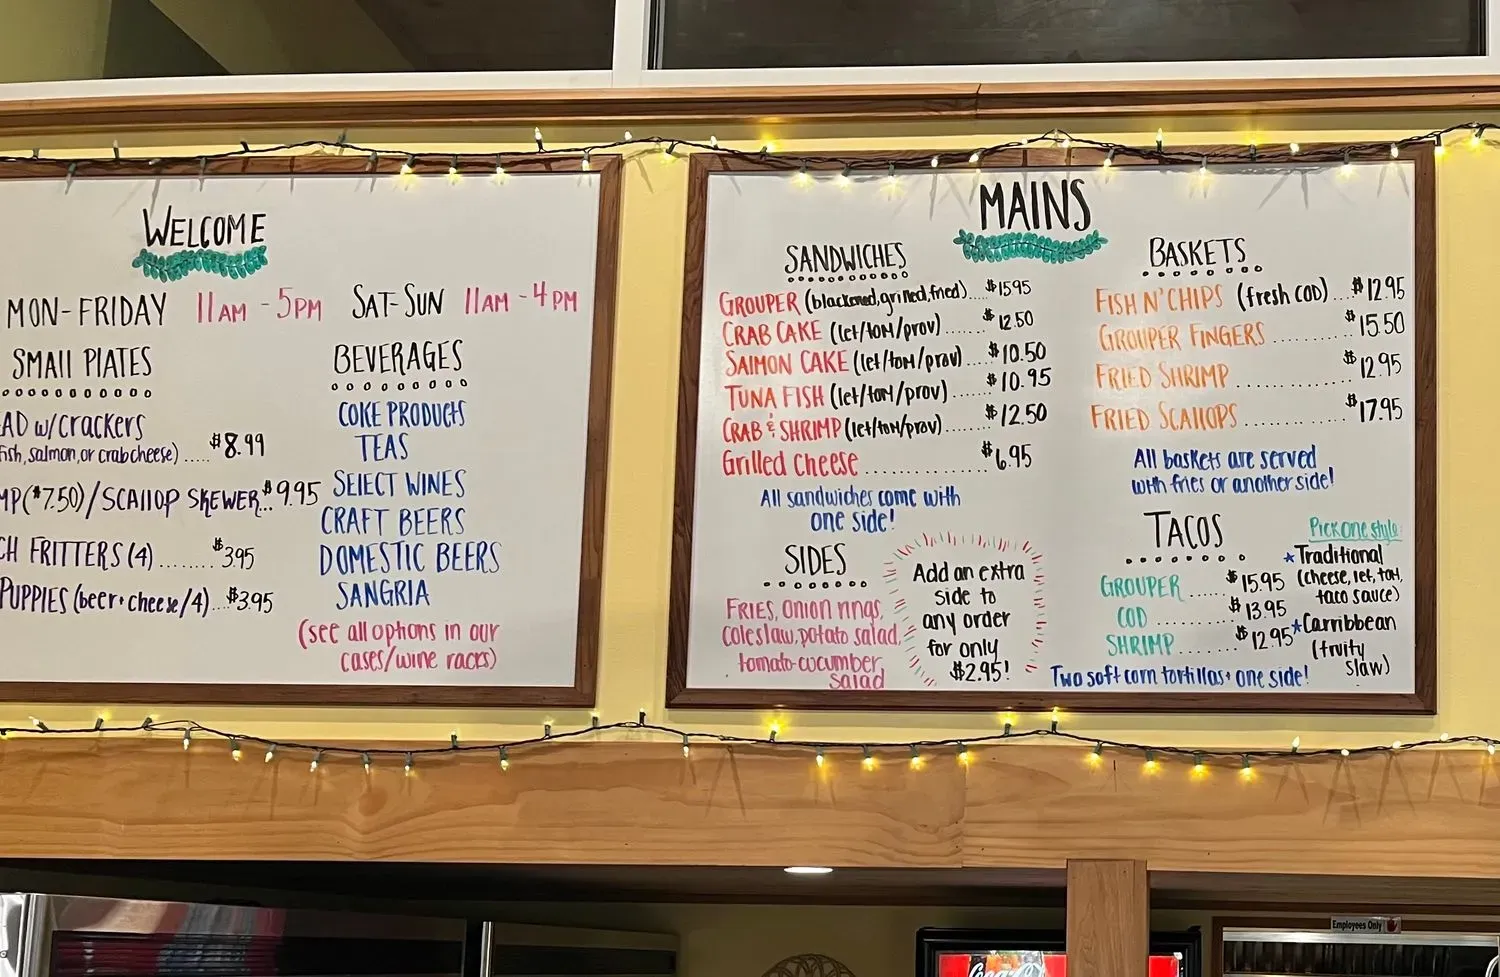 WELCOME
MON-FRIDAY 11AM - 5PM SAT-SUN 11AM - 4PM
SMALL PLATES
AD w/crackers
fish, salmon, or crab cheese) ..... $8.99
MP($7.50)/SCALLOP SKEWER.. $9.95
CH FRITTERS (4) ........ $3.95
PUPPIES (beer+cheese/4).... $3.95
BEVERAGES
COKE PRODUCTS
TEAS
SELECT WINES
CRAFT BEERS
DOMESTIC BEERS
SANGRIA
(see all options in our
cases/wine racks)
MAINS
SANDWICHES
GROUPER (blackened, grilled, fried)... $15.95
CRAB CAKE (let/tom/prov) ....... $12.50
SALMON CAKE (let/tom/prov) ... $10.50
TUNA FISH (let/tom/prov) ...... $10.95
CRAB & SHRIMP (let/tom/prov) ...... $12.50
Grilled Cheese .............. $6.95
All sandwiches come with
one side!
SIDES
FRIES, ONION rings,
coleslaw, potato salad,
tomato-cucumber
salad
Add an extra
side to
any order
for only
$2.95!
BASKETS
FISH N' CHIPS (fresh COD) ... $12.95
GROUPER FINGERS ........... $15.50
FRIED SHRIMP ................ $12.95
FRIED SCALLOPS ............... $17.95
All baskets are served
with fries or another side!
TACOS
GROUPER ...... $15.95
COD ........... $13.95
SHRIMP ......... $12.95
Pick one style:
★Traditional
(cheese, let, tom,
taco sauce)
★Carribbean
(fruity
slaw)
Two soft corn tortillas + one side!
Employees Only
Coca-Cola